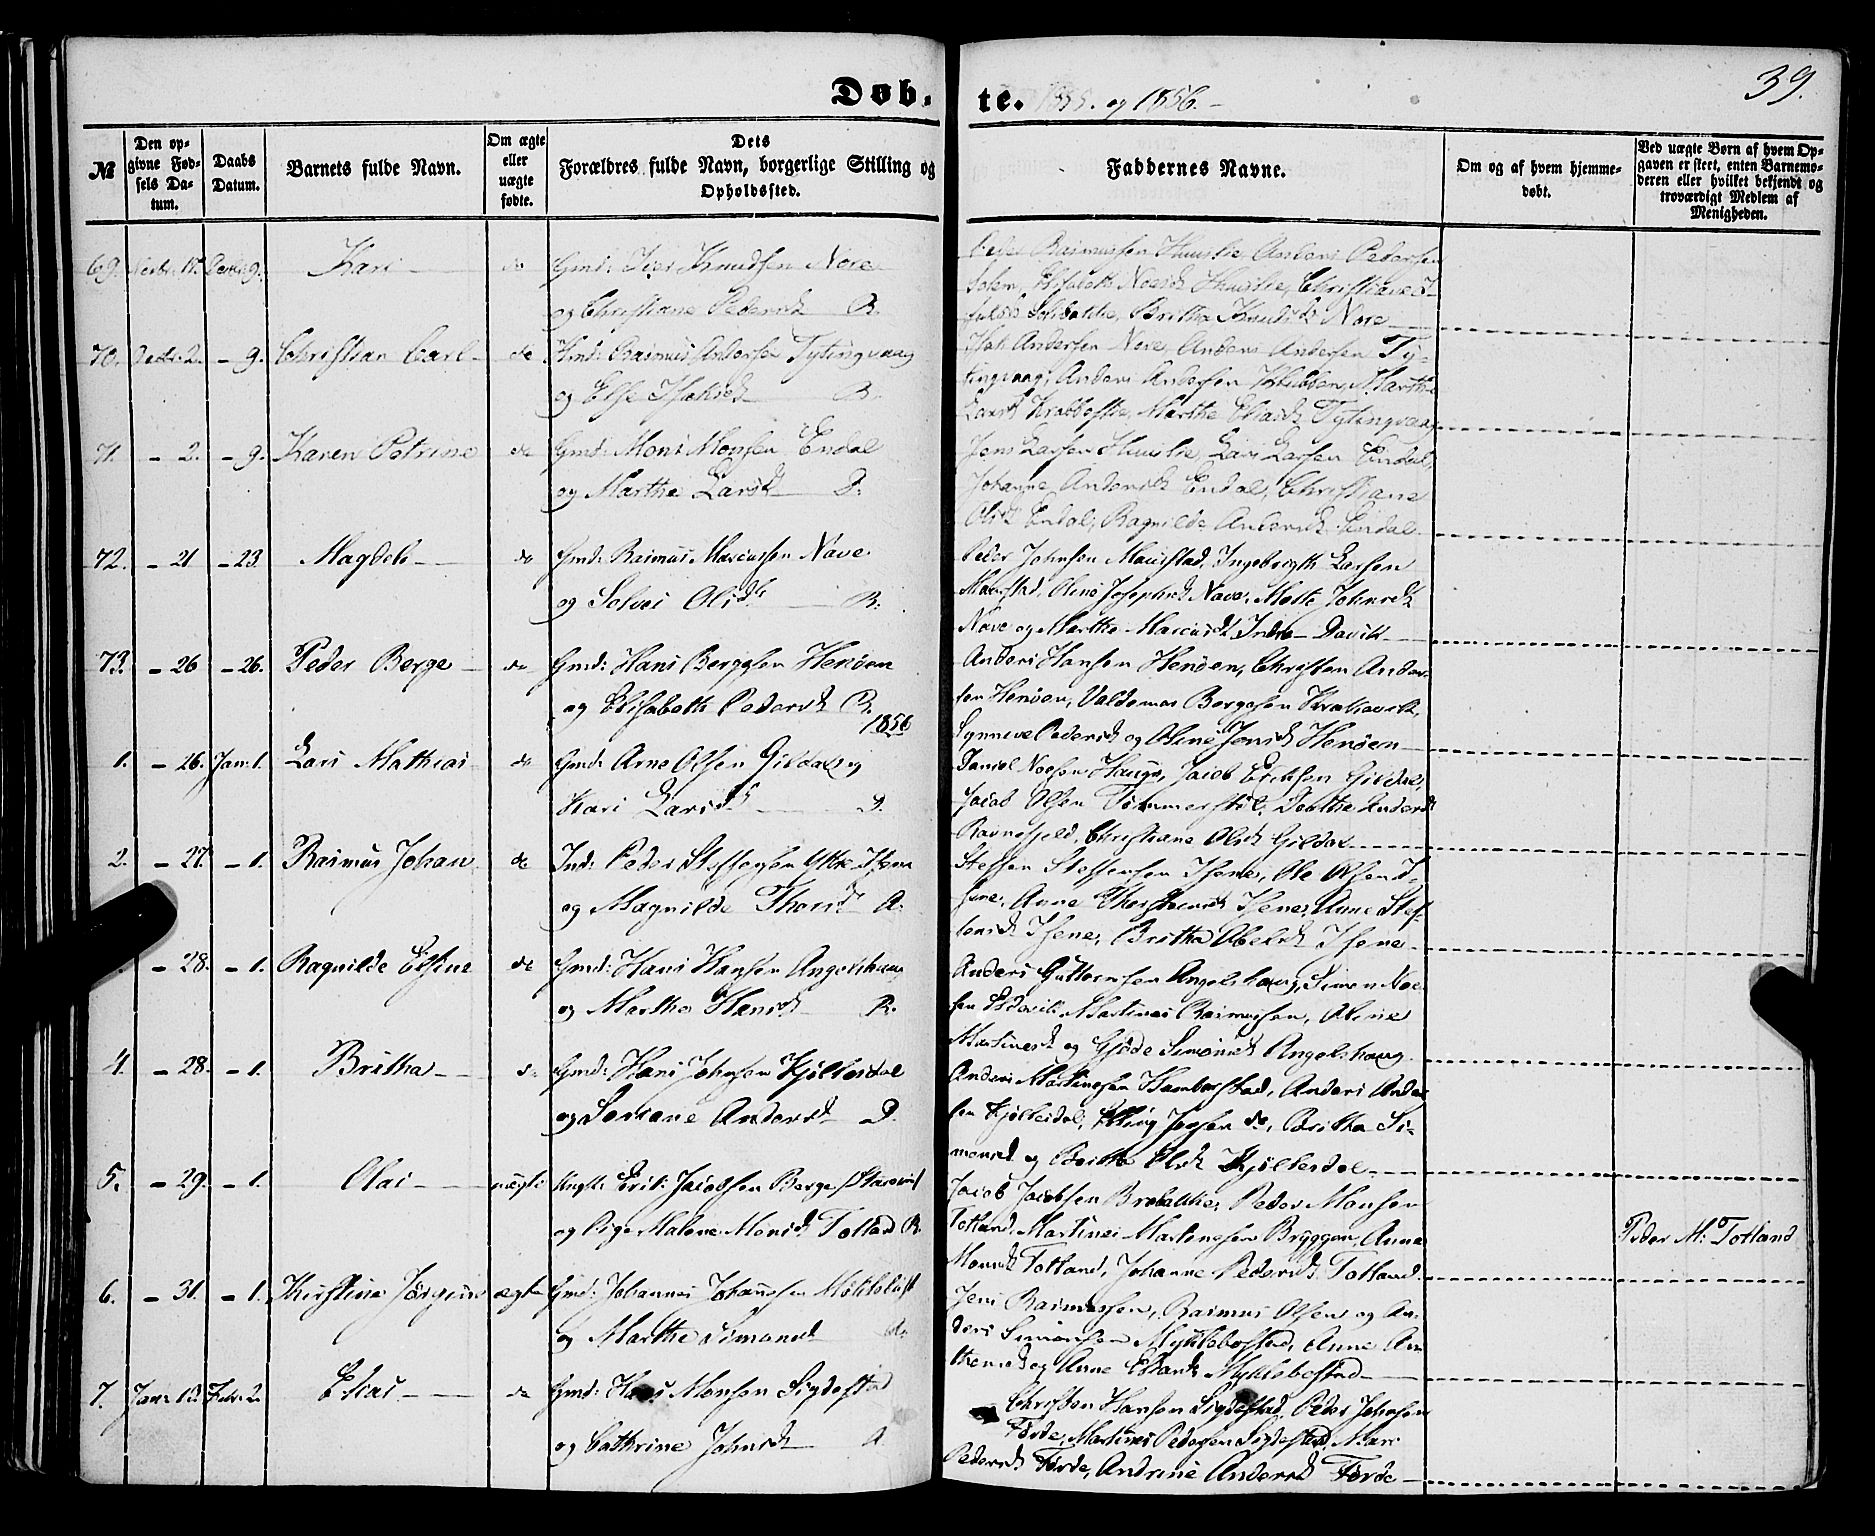 Døb- te. 1855. og 1856.
39.
№
Den opgivne Fødsels Datum.
Daabs Datum.
Barnets fulde Navn.
Om ægte eller uægte fødte.
Dets
Forældres fulde Navn, borgerlige Stilling og
Opholdssted.
Faddernes Navne.
Om og af hvem hjemmedøbt.
Ved uægte Børn af hvem Opgaven er skeet, enten Barnemoderen eller hvilket bekjendt og troværdigt Medlem af Menigheden.
69. Decbr. 9. Kari do Gmd: Iver Knudsen Nore
og Christiane Pedersd. R.
Peder Rasmussen Anders Pedersen
Britha Knudsd. Nore
70. Decbr. 2. - 9. Christian Carl do Gmd: Rasmus Andersen Tytingvaag
og Else Isaksd. R.
Isak Andersen Nore, Anders Andersen Ty-
tingvaag, Anders Andersen Marthe
Larsd. Marthe Eliasd. Tytingvaag
71. - 2. - 9. Karen Petrine do Gmd: Mons Monsen Endal
og Marthe Larsd. D.
Jens Larsen Lars Larsen Endal,
Johanne Andersd. Endal, Christiane
Olsd. Endal, Ragnilde Andersd. Endal
72. - 21 - 23. Magdeli do Gmd: Rasmus Marcussen Nave
og Solvei Olsd. R.
Peder Johnsen Maurstad, Ingebrigth Larsen
Maurstad, Oline Josephsd. Nave, Johnsd.
Nave og Marthe Marcusd. Indre Davik
73. - 26 - 26. Peder Berge do Gmd: Hans Bergesen Henøen
og Elisabeth Pedersd. R.
1856
Anders Hansen Henøen, Christen Ander-
sen Henøen, Valdemar Bergesen
Synneve Pedersd. og Oline Jensd. Henøen
1. - 26. Jan: 1. Lars Mathias do Gmd: Arne Olsen Gildal og
Kari Larsd. D.
Daniel Haugs, Jacob Eriksen Gildal,
Jacob Olsen Dorthe Andersd.
Ravnefjeld, Christiane Olsd. Gildal
2. - 27. - 1. Rasmus Johan do Ind: Peder Steffensen Ytre Isene
og Magnilde Thorsd. A.
Steffen Steffensen Isene, Ole Olsen I-
sene, Anne Isene, Anne Stef-
fensd. Isene, Britha Abelsd. Isene
- 28. - 1. Ragnilde Elsine do Gmd: Hans Hansen Angelshaug
og Marthe Hansd. R.
Anders Guttormsen Angelshaug, Simon
Martinus Rasmussen, Oline
Martinusd. og Gjøde Simonsd. Angelshaug
4. - 28. - 1. Britha Gmd: Hans Johnsen Kjøllesdal
og Andersd. D.
Anders Martinusen Hamberstad, Anders Ander-
sen Kjøllesdal, Elling Jensen do, Britha Si-
monsd. og Britha Olsd. Kjøllesdal
5. - 29. - 1. Olai uægte Ungk: Erik Jacobsen Berge
og Pige Malene Monsd. Totland R.
Jacob Jacobsen Peder Monsen
Totland, Martinus Martinusen Bryggen, Anne
Monsd. Totland, Johanne Pedersd. Totland.
Peder M: Totland
6. - 31. - 1. Kirstine Jørgine ægte Gmd: Johannes Johannesen
og Marthe Simonsd. A.
Jens Rasmussen, Rasmus Olsen og An-
ders Simonsen Myklebostad, Anne An-
thonsd. og Anne Myklebostad
7. Janr: 12. Febr: 2. Elias do Gmd: Hans Monsen Sigdestad
og Cathrine Johnsd. A.
Christen Hansen Sigdestad, Peder Johnsen
Førde, Martinus Pedersen Sigdestad, Mari
Pedersd. Førde, Andrine Andersd. Førde